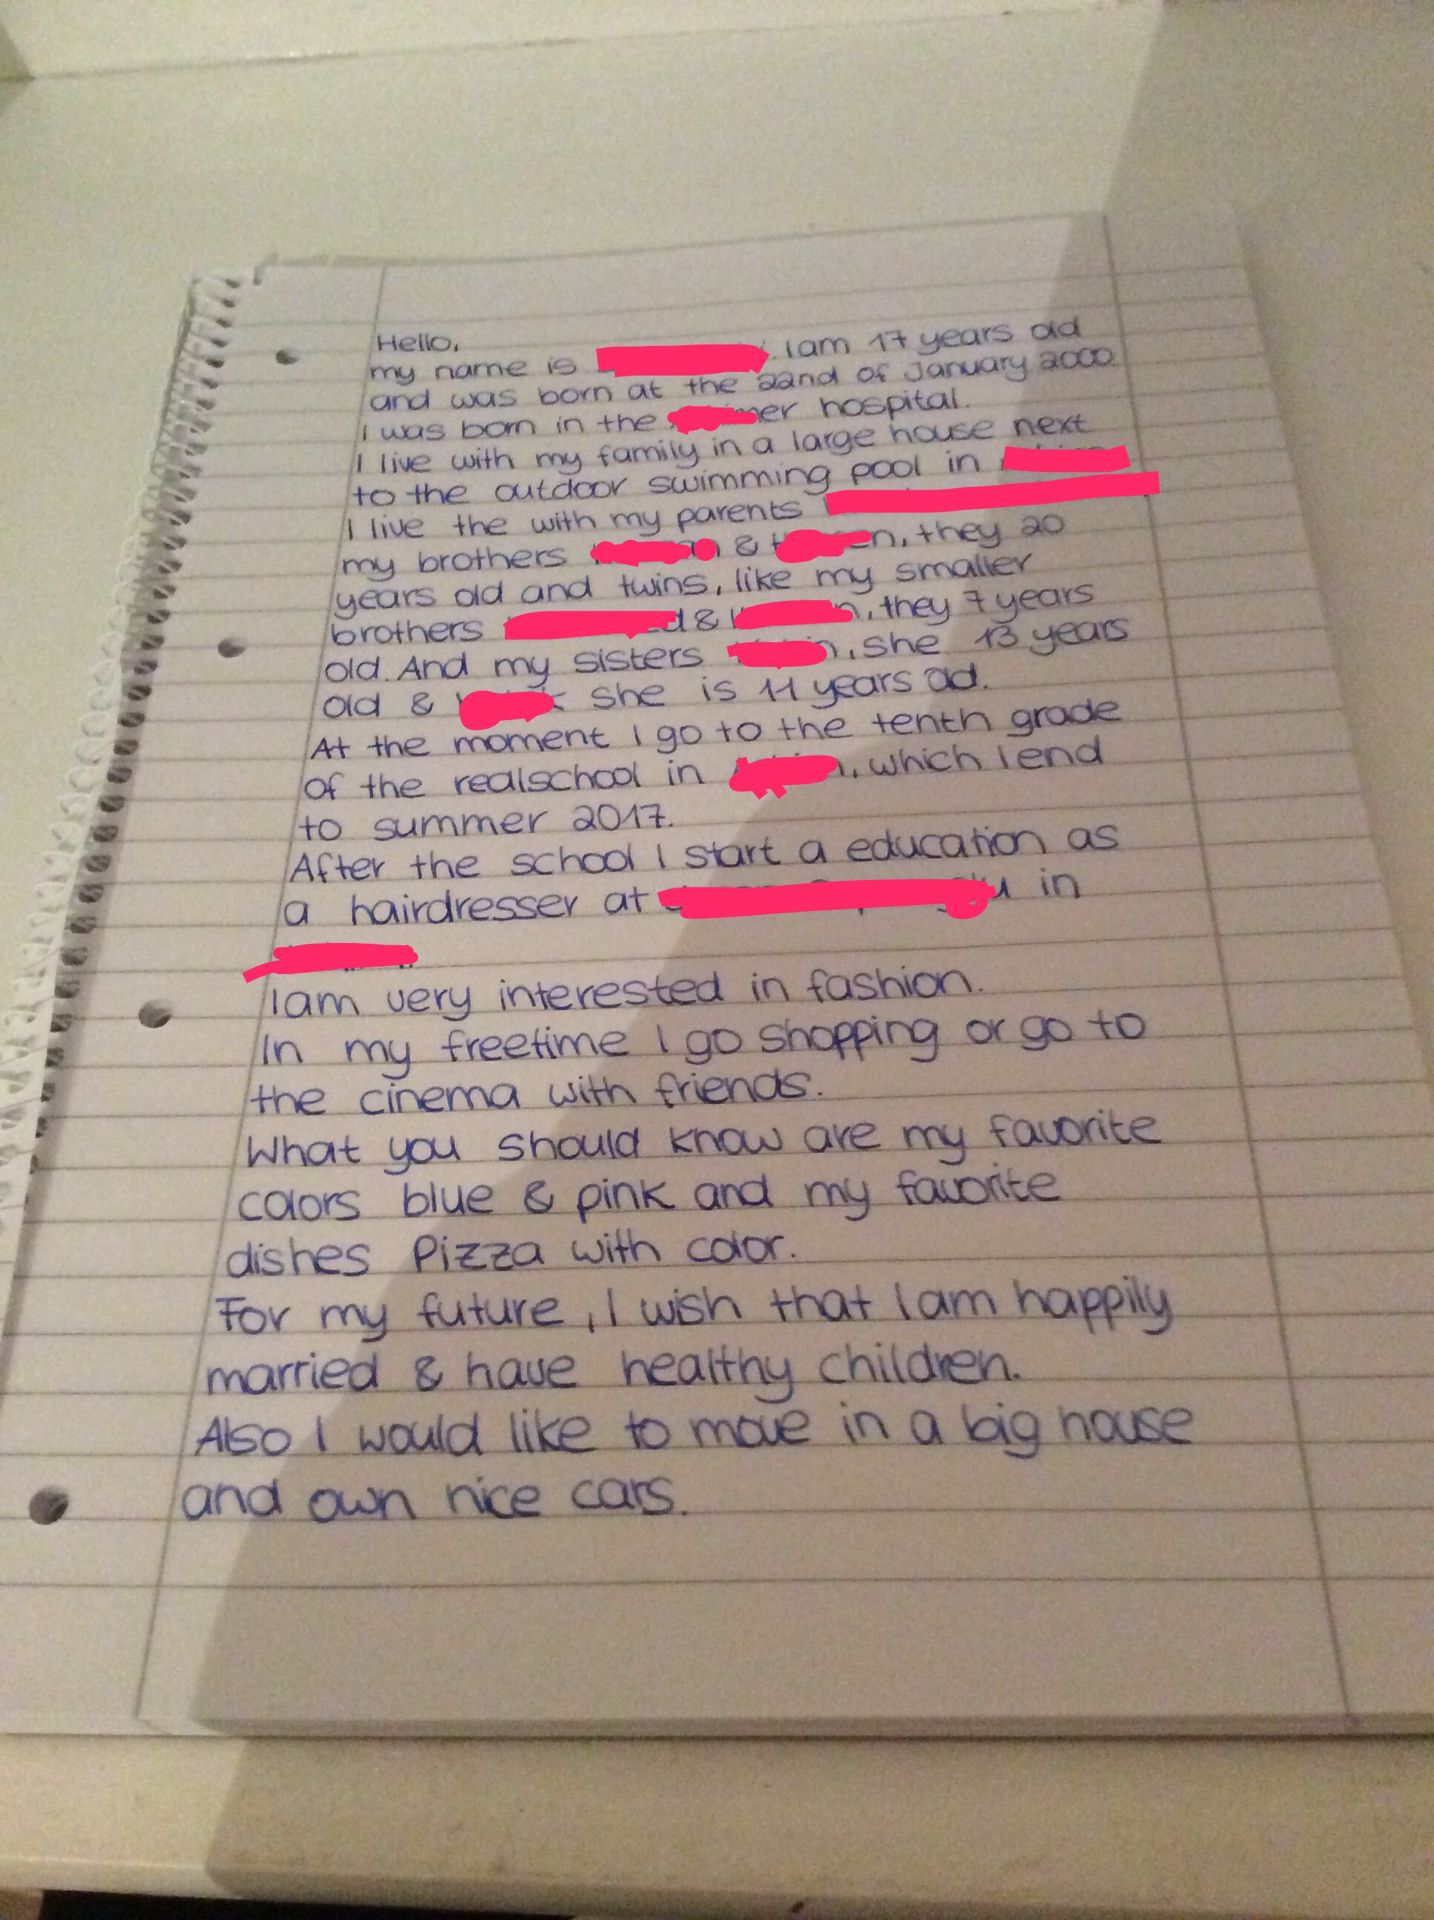 Hello,
my name is . I am 17 years old
and was born at the 22nd of January 2000.
I was born in the hospital.
I live with my family in a large house next
to the outdoor swimming pool in
I live the with my parents
my brothers & , they 20
years old and twins, like my smaller
brothers & , they 7 years
old. And my sisters , she 13 years
old & she is 11 years old.
At the moment I go to the tenth grade
of the realschool in , which I end
to summer 2017.
After the school I start a education as
a hairdresser at in
I am very interested in fashion.
In my freetime I go shopping or go to
the cinema with friends.
What you should know are my favorite
colors blue & pink and my favorite
dishes Pizza with color.
For my future, I wish that I am happily
married & have healthy children.
Also I would like to move in a big house
and own nice cars.